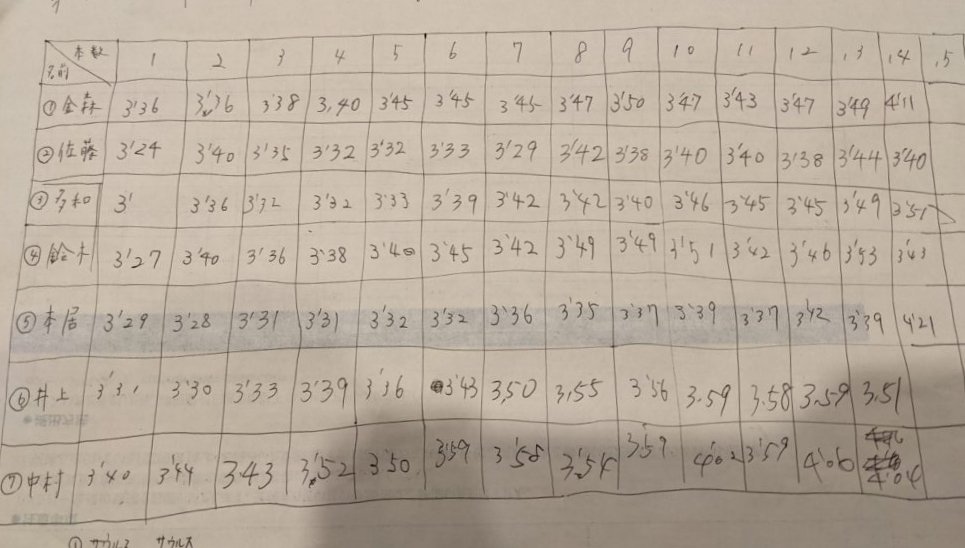 本数 名前 1 2 3 4 5 6 7 8 9 10 11 12 13 14 15
①金森 3'36 3'36 3'38 3,40 3'45 3'45 3'45 3'47 3'50 3'47 3'43 3'47 3'49 4'11
②佐藤 3'24 3'40 3'35 3'32 3'32 3'33 3'29 3'42 3'38 3'40 3'40 3'38 3'44 3'40
③多和 3' 3'36 3'32 3'32 3'33 3'39 3'42 3'42 3'40 3'46 3'45 3'45 3'49 3'51
④鈴木 3'27 3'40 3'36 3'38 3'40 3'45 3'42 3'49 3'49 3'51 3'42 3'46 3'53 3'43
⑤本居 3'29 3'28 3'31 3'31 3'32 3'32 3'36 3'35 3'37 3'39 3'37 3'42 3'39 4'21
⑥井上 3'31 3'30 3'33 3'39 3'36 3'43 3,50 3,55 3'56 3,59 3,58 3,59 3,51
⑦中村 3'40 3'44 343 3'52 3'50 3'59 3'58 3'54 3'59 4'02 3'59 4'06 4'04
① サウルス サウルス